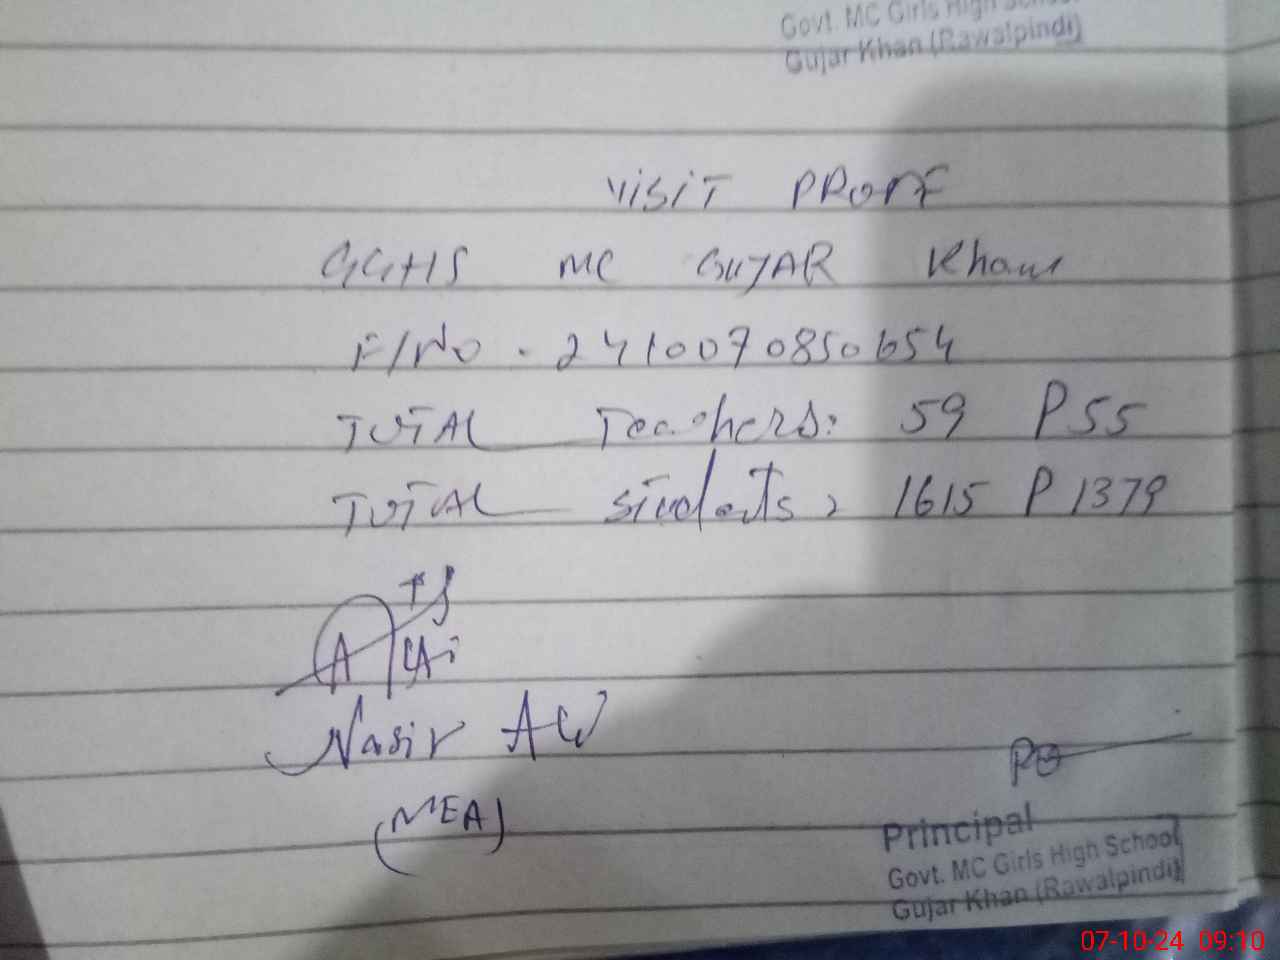 Govt. MC Girls High School
Gujar Khan (Rawalpindi)
VISIT PROOF
GGHS MC GUJAR Khan
F/No. 2410070850654
TOTAL Teachers: 59 P 55
TOTAL students: 1615 P 1379
Nasir Ali
(MEA)
Principal
Govt. MC Girls High School
Gujar Khan (Rawalpindi)
07-10-24 09:10